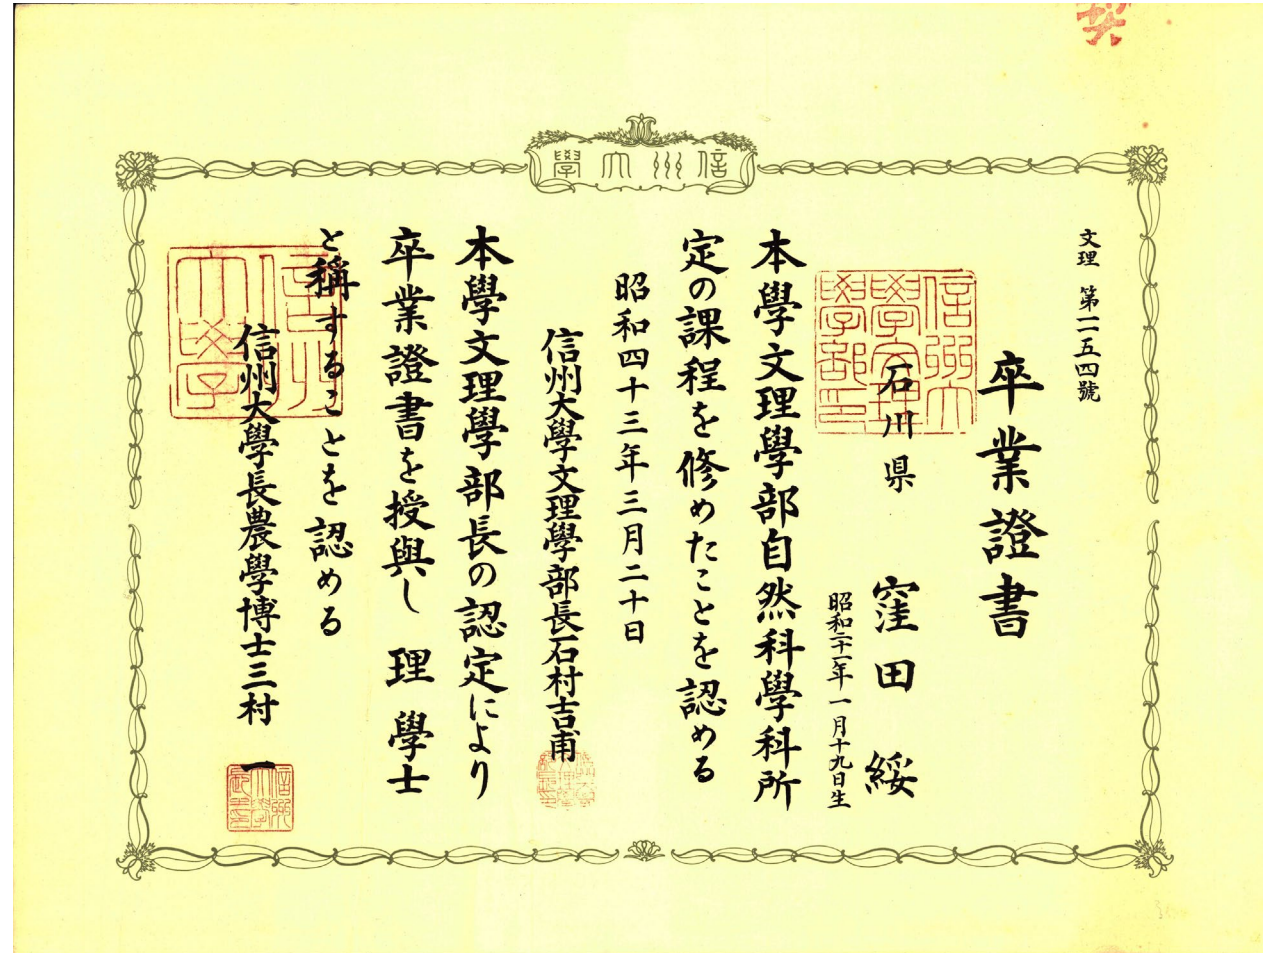 信州大學
文理 第一一五四號
卒業證書
信州大學文理學部印
石川県 窪田 綏
昭和二十一年一月十九日生
本學文理學部自然科學科所
定の課程を修めたことを認める
昭和四十三年三月二十日
信州大學文理學部長石村吉甫
本學文理學部長の認定により
卒業證書を授與し 理學士
と稱することを認める
信州大學
信州大學長農學博士三村 一